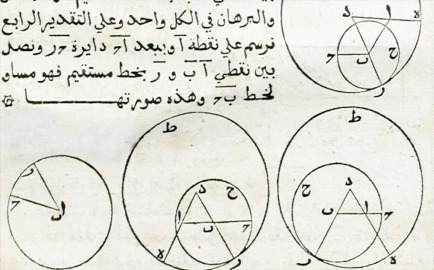 والبرهان في الكل واحد وعلي التقدير الرابع
نرسم علي نقطة آ وببعد آح دايرة حر ونصل
بين نقطي آ ب و ر بخط مستقيم فهو مساو
لخط ب ح وهذه صورتها
د ا ه
ح ب ح
ر
ط
ح
د
ا ب ح
ه ر
ط
ح
د
ب ا ح
ر ه
ر
ح
ا ب